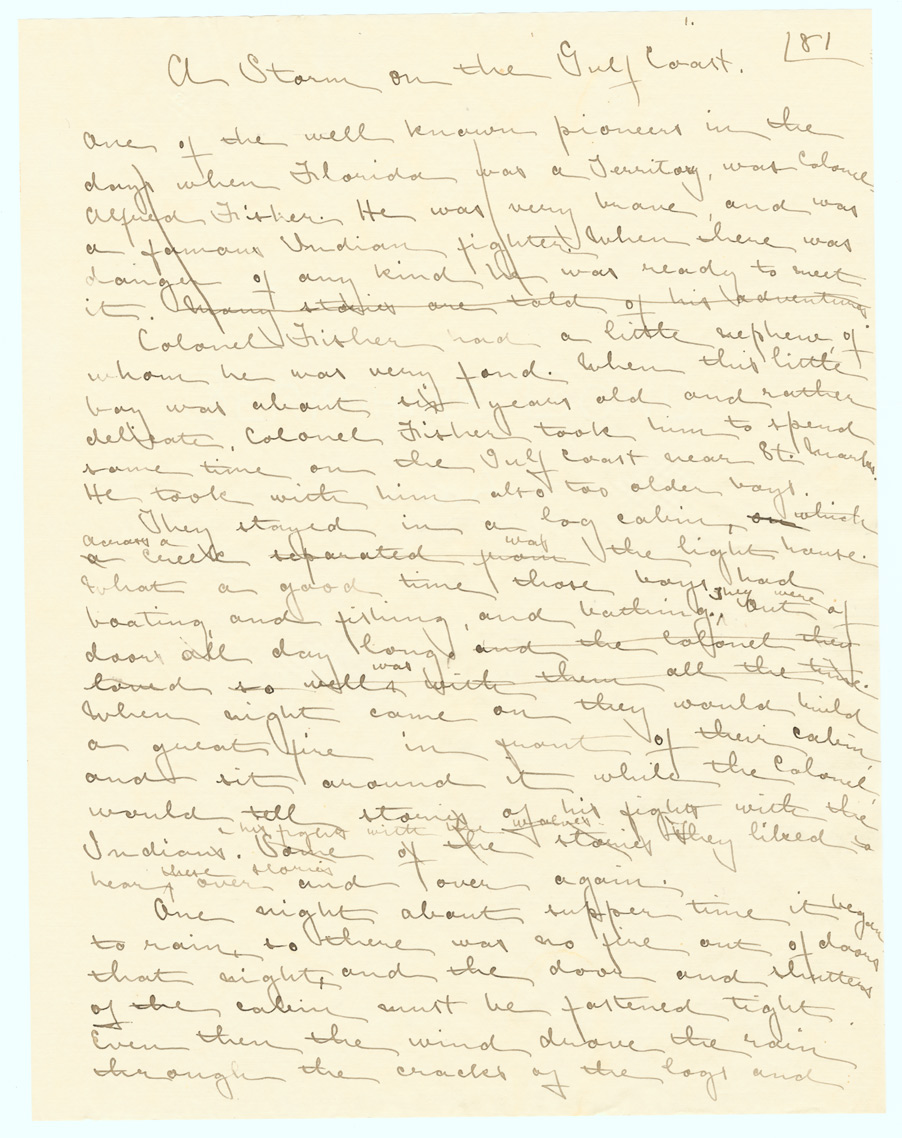 181
A Storm on the Gulf Coast.
One of the well known pioneers in the
days when Florida was a Territory, was Colonel
Alfred Fisher. He was very brave, and was
a famous Indian fighter. When there was
danger of any kind he was ready to meet
it. Many stories are told of his adventures
Colonel Fisher had a little nephew, of
whom he was very fond. When this little
boy was about six years old and rather
delicate, Colonel Fisher took him to spend
some time on the Gulf Coast near St. Marks.
He took with him also two older boys.
They stayed in a log cabin, on which
across a was
a creek separated from the light house.
What a good time those boys had
boating and fishing, and bathing., They were out of
doors all day long, and the Colonel they
was
loved so well with them all the time.
When night came on they would build
a great fire in front of their cabin,
and sit around it while the Colonel
would tell stories of his fights with the
his fights with the wolves.
Indians. Some of the stories They liked to
these stories
hear over and over again.
One night about supper time it began
to rain, so there was no fire out of doors
that night, and the door and shutters
of the cabin must be fastened tight.
Even then the wind drove the rain
through the cracks of the logs and